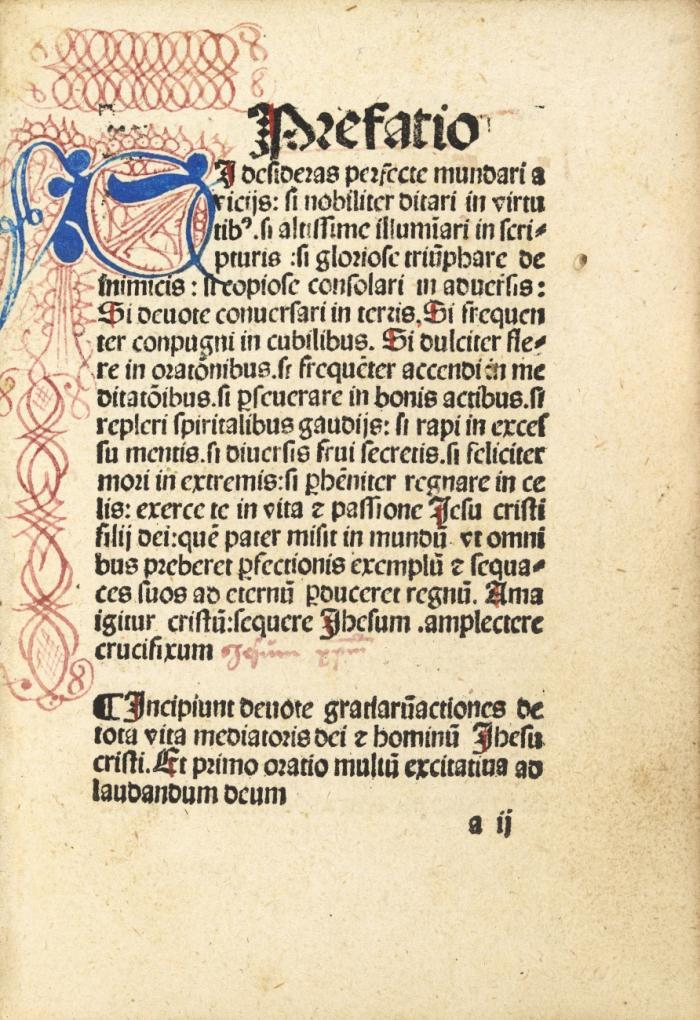 Prefatio
SI desideras perfecte mundari a
vicijs: si nobiliter ditari in virtu
tibꝰ.si altissime illumīari in scri⸗
pturis :si gloriose triūphare de
inimicis : si copiose consolari in aduersis:
Si deuote conuersari in terris. Si frequen
ter conpugni in cubilibus. Si dulciter fle⸗
re in oratōnibus.si frequēter accendi in me
ditatōibus.si ꝑseuerare in bonis actibus.si
repleri spiritalibus gaudijs: si rapi in exces
su mentis.si diuersis frui secretis.si feliciter
mori in extremis:si ꝑhēniter regnare in ce
lis: exerce te in vita ⁊ passione Jesu cristi
filij dei:quē pater misit in mundū vt omni
bus preberet ꝑfectionis exemplū ⁊ sequa⸗
ces suos ad eternū ꝓduceret regnū. Ama
igitur cristū:sequere Jhesum .amplectere
crucifixum Jesum xpm
¶ Incipiunt deuote gratiarūactiones de
tota vita mediatoris dei ⁊ hominū Jhesu
cristi. Et primo oratio multū excitatiua ad
laudandum deum
a ij